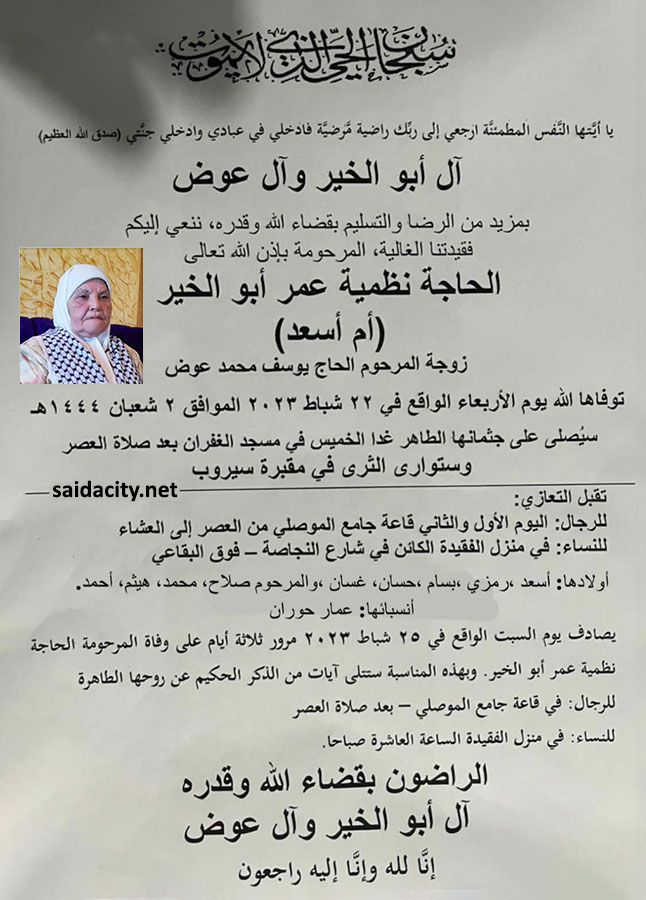 سبحان الحي الذي لا يموت
يا أيَّتها النَّفس المطمئنَّة ارجعي إلى ربِّك راضية مَّرضيَّة فادخلي في عبادي وادخلي جنَّتي (صدق الله العظيم)
آل أبو الخير وآل عوض
بمزيد من الرضا والتسليم بقضاء الله وقدره، ننعي إليكم
فقيدتنا الغالية، المرحومة بإذن الله تعالى
الحاجة نظمية عمر أبو الخير
(أم أسعد)
زوجة المرحوم الحاج يوسف محمد عوض
توفاها الله يوم الأربعاء الواقع في ٢٢ شباط ٢٠٢٣ الموافق ٢ شعبان ١٤٤٤هـ
سيُصلى على جثمانها الطاهر غدا الخميس في مسجد الغفران بعد صلاة العصر
وستوارى الثرى في مقبرة سيروب
saidacity.net
تقبل التعازي:
للرجال: اليوم الأول والثاني قاعة جامع الموصلي من العصر إلى العشاء
للنساء: في منزل الفقيدة الكائن في شارع النجاصة – فوق البقاعي
أولادها: أسعد ،رمزي ،بسام ،حسان، غسان ،والمرحوم صلاح، محمد، هيثم، أحمد.
أنسبائها: عمار حوران
يصادف يوم السبت الواقع في ٢٥ شباط ٢٠٢٣ مرور ثلاثة أيام على وفاة المرحومة الحاجة
نظمية عمر أبو الخير. وبهذه المناسبة ستتلى آيات من الذكر الحكيم عن روحها الطاهرة
للرجال: في قاعة جامع الموصلي – بعد صلاة العصر
للنساء: في منزل الفقيدة الساعة العاشرة صباحا.
الراضون بقضاء الله وقدره
آل أبو الخير وآل عوض
إنَّا لله وإنَّا إليه راجعون